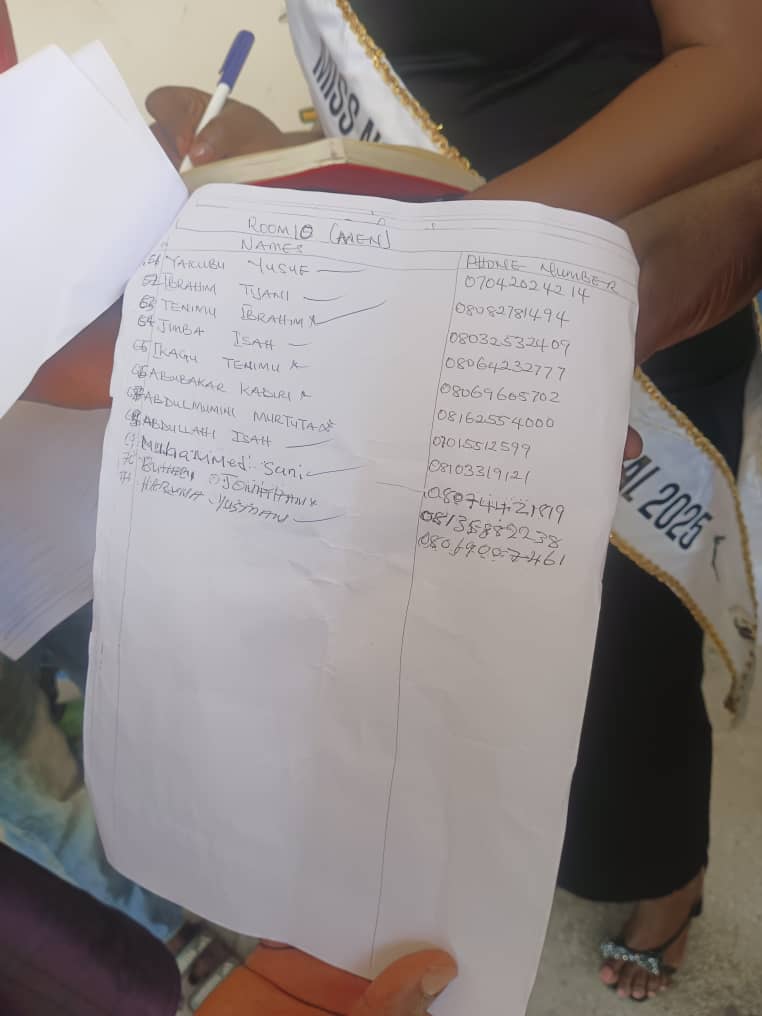 MISS N
ROOM 10 (MEN)
NAMES PHONE NUMBER
61 YAKUBU YUSUF 07042024214
62 IBRAHIM TIJANI 08082781494
63 TENIMU IBRAHIM 08032532409
64 JIMBA ISAH 08064232777
65 IKAGU TENIMU 08069605702
66 ABUBAKAR KADIRI 08162554000
ABDULMUMINI MURTUTA 07015512599
68 ABDULLAHI ISAH 08103319121
69 Muhammed Sani 08074421819
70 JONATHAN 08135889238
71 HARUNA 08069007461
AL 2025